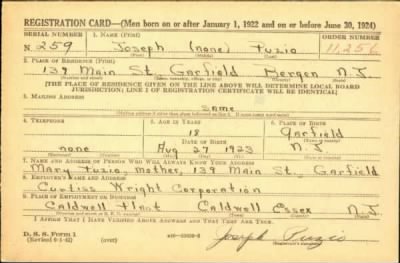 REGISTRATION CARD—(Men born on or after January 1, 1922 and on or before June 30, 1924)
SERIAL NUMBER 1. NAME (Print) ORDER NUMBER
N 259 Joseph (none) Puzio 11,256
2. PLACE OF RESIDENCE (Print)
139 Main St. Garfield Bergen N.J.
[THE PLACE OF RESIDENCE GIVEN ON THE LINE ABOVE WILL DETERMINE LOCAL BOARD
JURISDICTION; LINE 2 OF REGISTRATION CERTIFICATE WILL BE IDENTICAL]
3. MAILING ADDRESS
Same
4. TELEPHONE 5. AGE IN YEARS 6. PLACE OF BIRTH
18 Garfield
DATE OF BIRTH
none Aug 27 1923 N.J.
7. NAME AND ADDRESS OF PERSON WHO WILL ALWAYS KNOW YOUR ADDRESS
Mary Puzio, mother, 139 Main St. Garfield
8. EMPLOYER'S NAME AND ADDRESS
Curtiss Wright Corporation
9. PLACE OF EMPLOYMENT OR BUSINESS
Caldwell Plant Caldwell Essex N.J.
I AFFIRM THAT I HAVE VERIFIED ABOVE ANSWERS AND THAT THEY ARE TRUE.
D. S. S. Form 1
(over)
Joseph Puzio